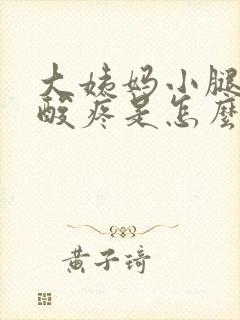 大姨妈小腿
酸疼是怎麼
黄子琦